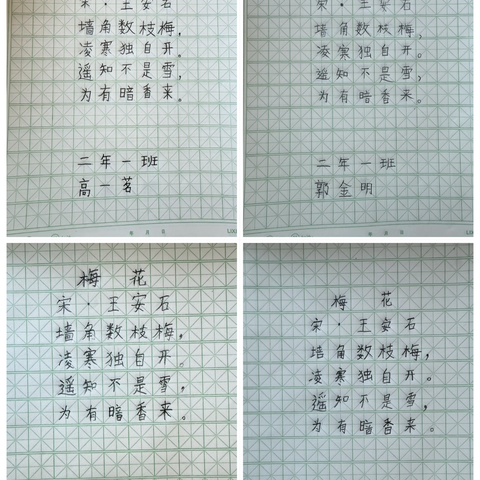 宋·王安石
墙角数枝梅，
凌寒独自开。
遥知不是雪，
为有暗香来。
二年一班
高一茗
年 月 日
宋·王安石
墙角数枝梅，
凌寒独自开。
遥知不是雪，
为有暗香来。
二年一班
郭金明
年 月 日
梅 花
宋·王安石
墙角数枝梅，
凌寒独自开。
遥知不是雪，
为有暗香来。
梅 花
宋·王安石
墙角数枝梅，
凌寒独自开。
遥知不是雪，
为有暗香来。